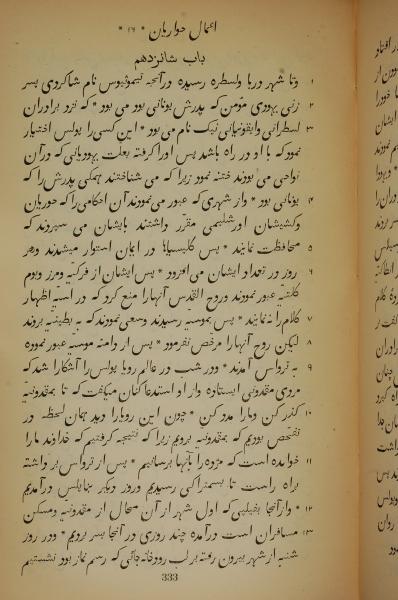 اعمال حواریان * ۱۶ *
باب شانزدهم
۱ وتا شهر دربا ولسطره رسیده درآنجا تیموثیوس نام شاکردی پسر
۲ زنی یهودی مؤمن که پدرش یونانی بود می بود * که نزد برادران
۳ لسطرانی وایقونیانی نیک نام می بود * این کسی را پولس اختیار
نمود که با او در راه باشد پس اورا گرفته بعلت یهودیانی که درآن
نواحی می بودند ختنه نمود زیرا که می شناختند همکی پدرش را که
۴ یونانی بود * واز شهری که عبور می نمودند آن احکامی را که حواریان
وکشیشان اورشلیمی مقرر داشتند بایشان می سپردند که
۵ محافظت نمایند * پس کلیسیاها در ایمان استوار میشدند وهر
۶ روز در تعداد ایشان می افزود * پس ایشان از فرکیه ومرز وبوم
کلتیه عبور نمودند وروح القدس آنهارا منع کرد که در اسیه اظهار
۷ کلام را نه نمایند * پس بموسیه رسیدند وسعی نمودند که به بطینیه بروند
۸ لیکن روح آنهارا مرخص نفرمود * پس از دامنه موسیه عبور نموده
۹ به ترواس آمدند * ودر شب در عالم رویا پولس را آشکارا شد که
مردی مقدونی ایستاده واز او استدعا کنان میکفت که تا بمقدونیه
۱۰ کذر کن ومارا مدد کن * چون این رویارا دید همان لحظه در
تفحص بودیم که بمقدونیه برویم زیرا که نتیجه کرفتیم که خداوند مارا
۱۱ خوانده است که مژده را بآنها برسانیم * پس از ترواس بر داشته
براه راست تا بسمتراکی رسیدیم وروز دیکر بنابلس درآمدیم
۱۲ * واز آنجا بفیلپی که اول شهر از آن محال از مقدونیه ومسکن
۱۳ مسافران است درآمده چند روزی در آنجا بسر بردیم * ودر روز
شنبه از شهر بیرون رفته بر لب رودخانه جائی که رسم نماز بود نشستیم
333